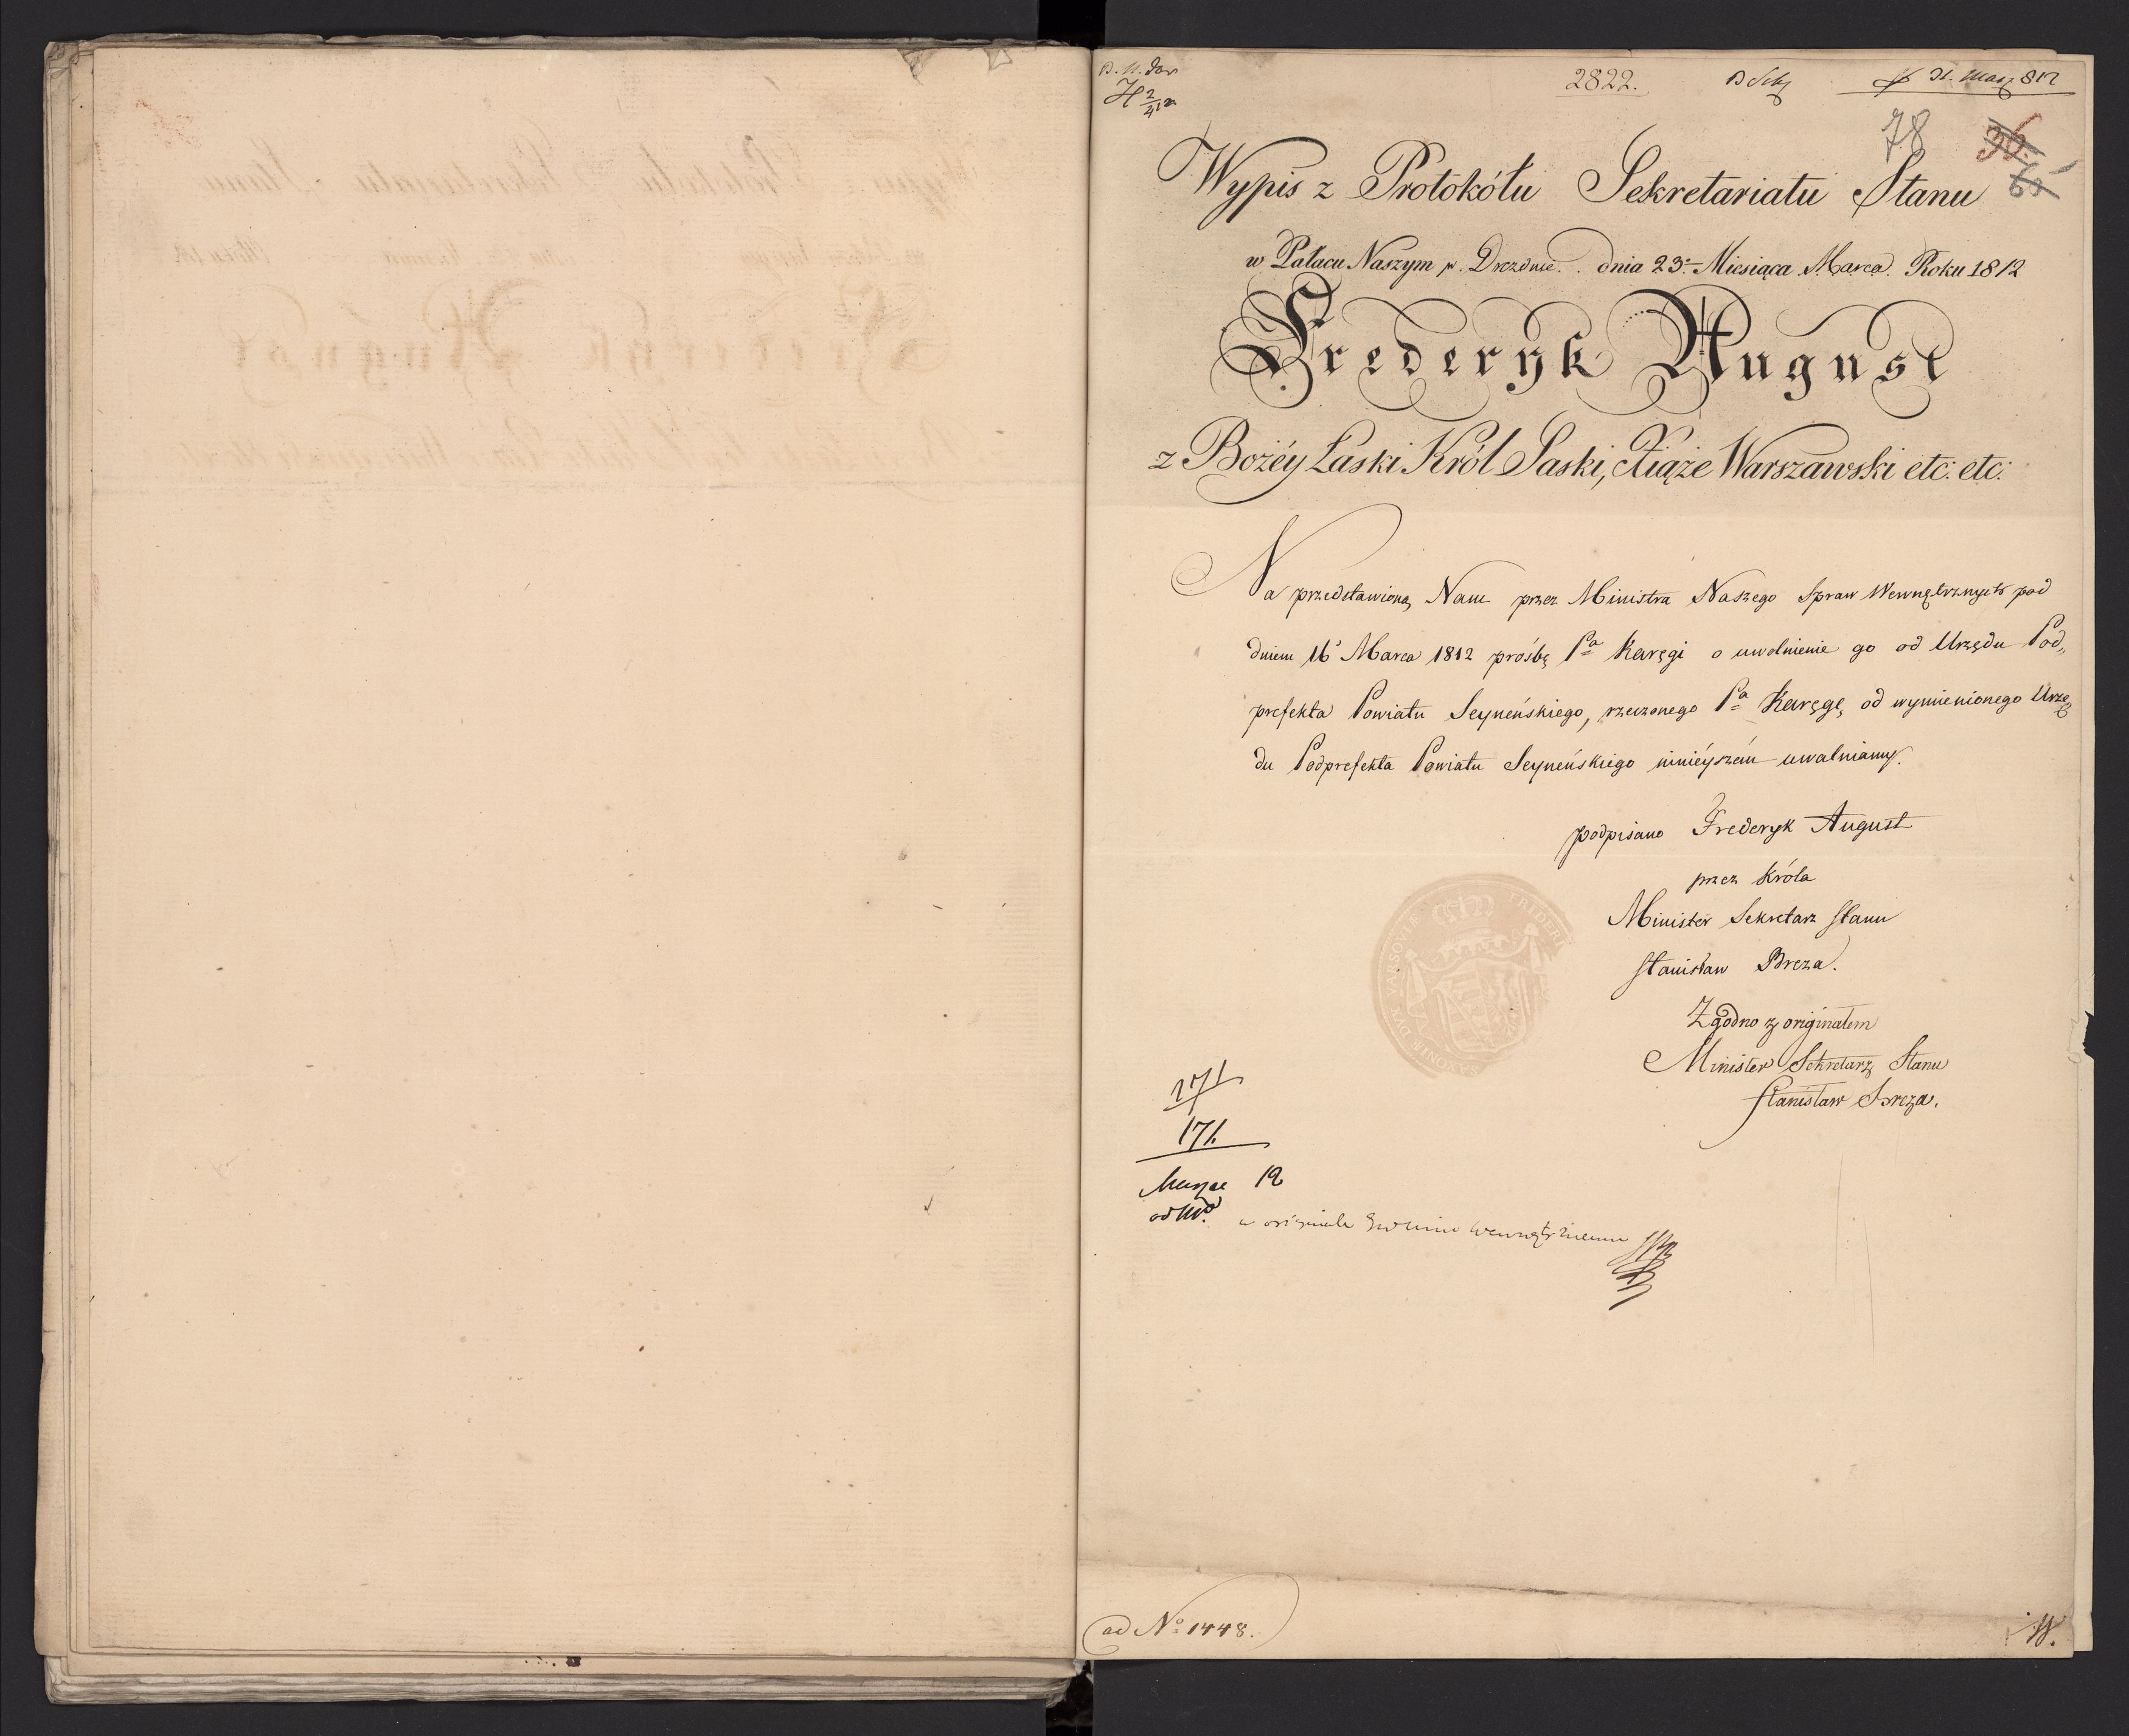 2822.
31. Marz 812
78
36.
65
Wypis z Protokółu Sekretariatu Stanu
w Pałacu Naszym w. Dreznie. dnia 23º Miesiąca Marca. Roku 1812
Frederyk August
z Bożéy Łaski Król Saski, Xiąże Warszawski etc: etc:
Na przedstawioną Nam przez Ministra Naszego Spraw Wewnętrznych pod
dniem 16º Marca 1812 prośbę Pª Karęgi o uwolnienie go od Urzędu Pod„
prefekta Powiatu Seyneńskiego, rzeczonego Pª Karęgę, od wymienionego Urzę
du Podprefekta Powiatu Seyneńskiego ninieyszém uwalniamy.
podpisano Frederyk August
przez Króla
Minister Sekretarz Stanu
Stanisław Breza.
Zgodno z originałem
Minister Sekretarz Stanu
Stanisław Breza.
171
171.
12
w originale
ad Nº 1448.